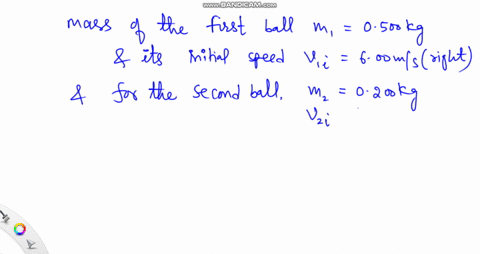 WWW.BANDICAM.COM
mass of the first ball m₁ = 0.500 kg
& its initial speed V₁i = 6.00 m/s (right)
& for the second ball, m₂ = 0.200 kg
V₂i